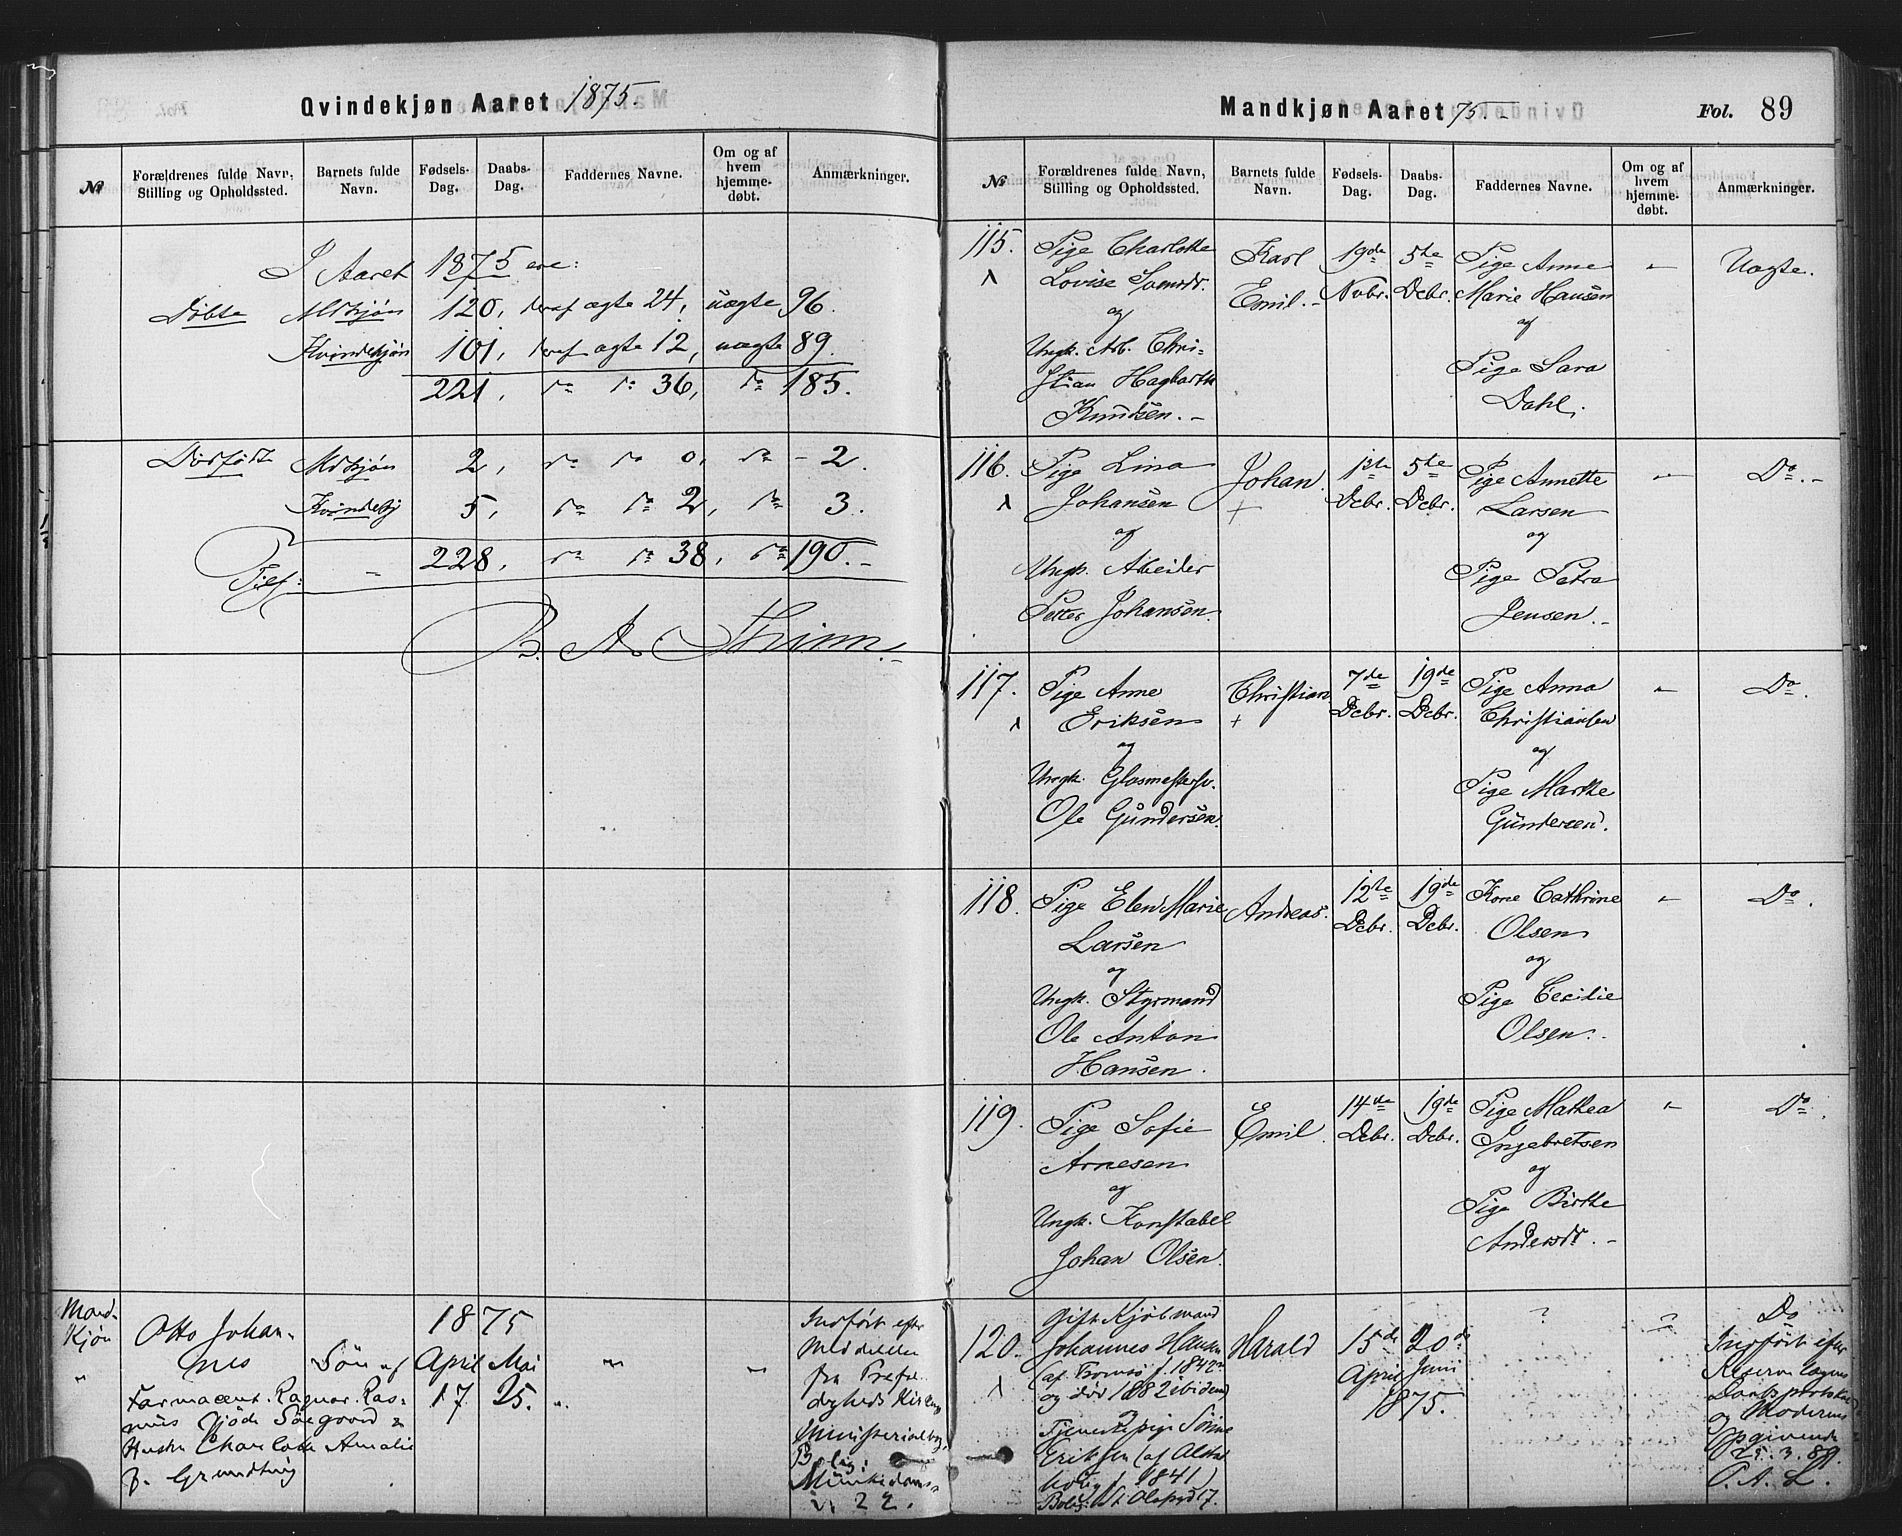 Qvindekjøn Aaret 1875.
№
Forældrenes fulde Navn,
Stilling og Opholdssted.
Barnets fulde
Navn.
Fødsels-
Dag.
Daabs-
Dag.
Faddernes Navne.
Om og af
hvem
hjemme-
døbt.
Anmærkninger.
I Aaret 1875 ere:
Døbte Mdkjøn 120, deraf ægte 24, uægte 96.
Kvindekjøn 101, deraf ægte 12, uægte 89.
221, do do 36, do 185.
Dødfødte Mdkjøn 2, do do 0, do - 2.
Kvindekj 5, do do 2, do 3.
Tils: - 228, do do 38, do 190.-
Mand-
kjøn
"
Otto Johan-
nes
Søn af
1875
April Mai
17 25.
Farmaceut Ragnar Ras-
mus
Søegaard &
Hustru Charlotte Amalie
f. Grundtvig
Indført efter
Meddelelse
fra Trefol-
digheds Kirkes
Ministerialbog
Bolig:
Munkedams-
v. 22.
Mandkjøn Aaret 75.-
Fol. 89
№
Forældrenes fulde Navn,
Stilling og Opholdssted.
Barnets fulde
Navn.
Fødsels-
Dag.
Daabs-
Dag.
Faddernes Navne.
Om og af
hvem
hjemme-
døbt.
Anmærkninger.
115.
Pige Charlotte
Lovise
og
Ungk. Arb. Chri-
stian Hagbarth
Knudsen.-
Karl
Emil.-
19de
Novbr.
5te
Dcbr.
Pige Anne
Marie Hansen
og
Pige Sara
Dahl.
Uægte.
116.
Pige Lina
Johansen
og
Ungk. Abeider
Petter Johansen.
Johan.
+
1ste
Dcbr.
5te
Dcbr.
Pige Annette
Larsen
og
Pige Petra
Jensen.-
Do.-
117.
Pige Anne
Eriksen
og
Ungk. Glasmestersv.
Ole Gundersen.
Christian
+
7de
Dcbr.
19de
Dcbr.
Pige Anna
Christiansen
og
Pige Marthe
Gundersen.
Do.
118.
Pige Elen Marie
Larsen
og
Ungk. Styrmand
Ole Anton
Hansen.
Andreas.
12te
Dcbr.
19de
Dcbr.
Kone Cathrine
Olsen
og
Pige Cecilie
Olsen.
Do.
119.
Pige Sofie
Arnesen
og
Ungk. Konstabel
Johan Olsen.
Emil.
14de
Dcbr.
19de
Dcbr.
Pige Mathea
Ingebretsen
og
Pige Birthe
Andersdr.-
Do.
120.
Gift Kjøbmand
Johannes Hansen
(af Tromsø f. 1842
og død 1882 ibidem)
og
Tjenestepige Sørine
Eriksen (af
f. 1841)
Bolig: St Olafsgd 17.
Harald
15de
April
20de
Juni
1875.
?
Do
Indført efter
Daabsprotokol
og Moderens
Opgivende
25.3.89.
P. A. L.
B. A. Thrimm.-